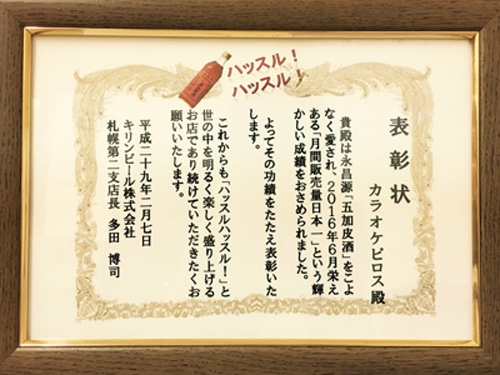 ハッスル！
ハッスル！
表彰状
カラオケビロス殿
貴殿は永昌源「五加皮酒」をこよ
なく愛され、２０１６年６月栄え
ある「月間販売量日本一」という輝
かしい成績をおさめられました。
よってその功績をたたえ表彰いた
します。
これからも「ハッスルハッスル！」と
世の中を明るく楽しく盛り上げる
お店であり続けていただきたくお
願いいたします。
平成二十九年二月七日
キリンビール株式会社
札幌第二支店長　多田　博司